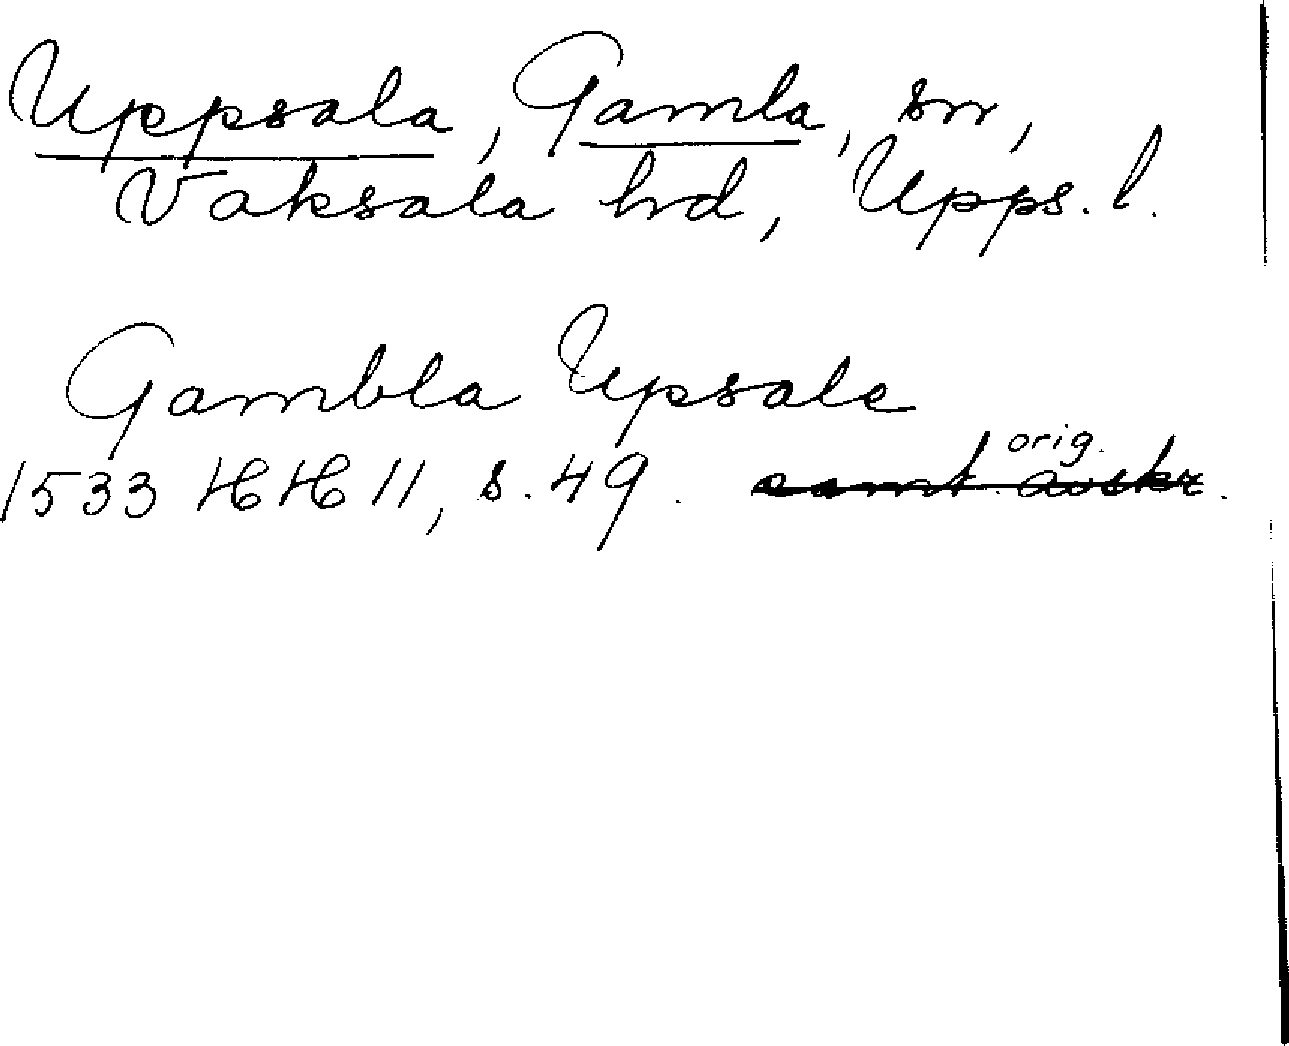 Uppsala, Gamla, sn,
Vaksala hd, Upps. l.
Gambla Upsala
orig.
1533 HH 11, s. 49. samt. avskr.